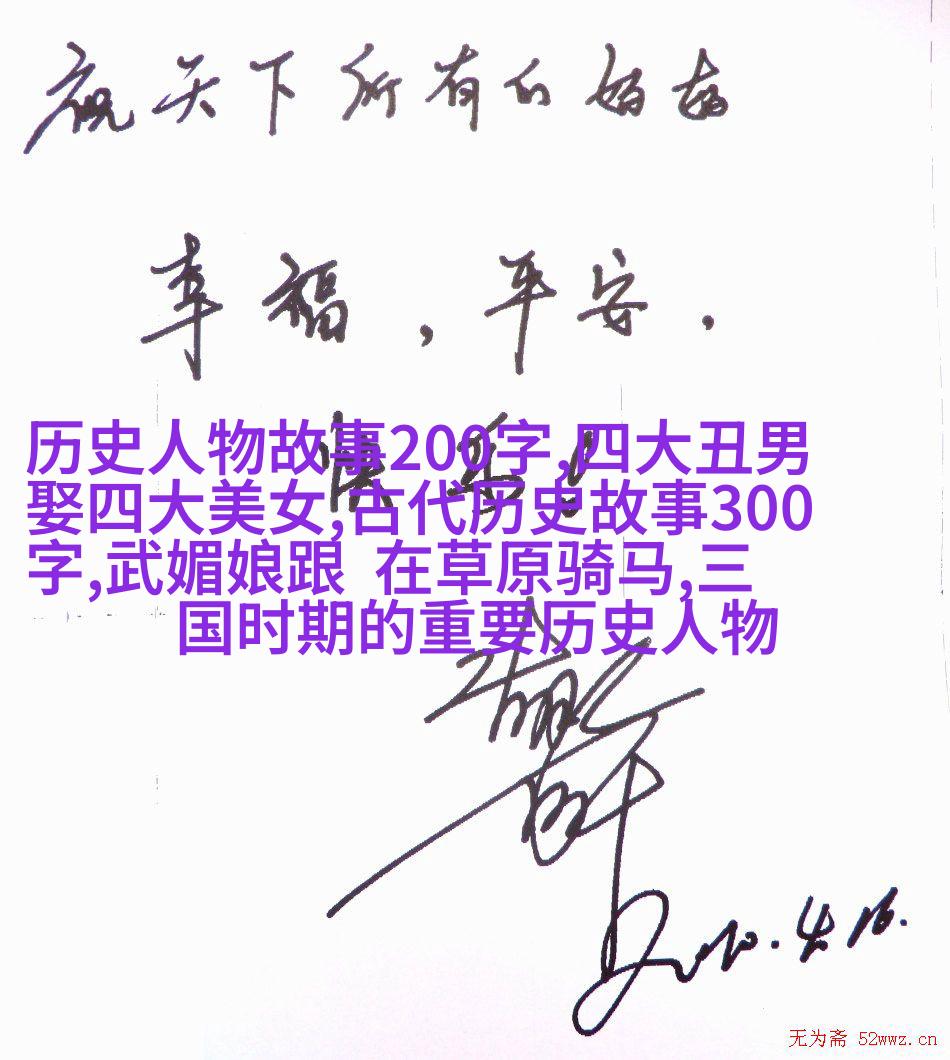 祝天下所有的妈妈
幸福，平安，
快乐！
历史人物故事200字,四大丑男
娶四大美女,古代历史故事300
字,武媚娘跟 在草原骑马,三
国时期的重要历史人物
2010.4.16.
无为斋 52wwz.cn